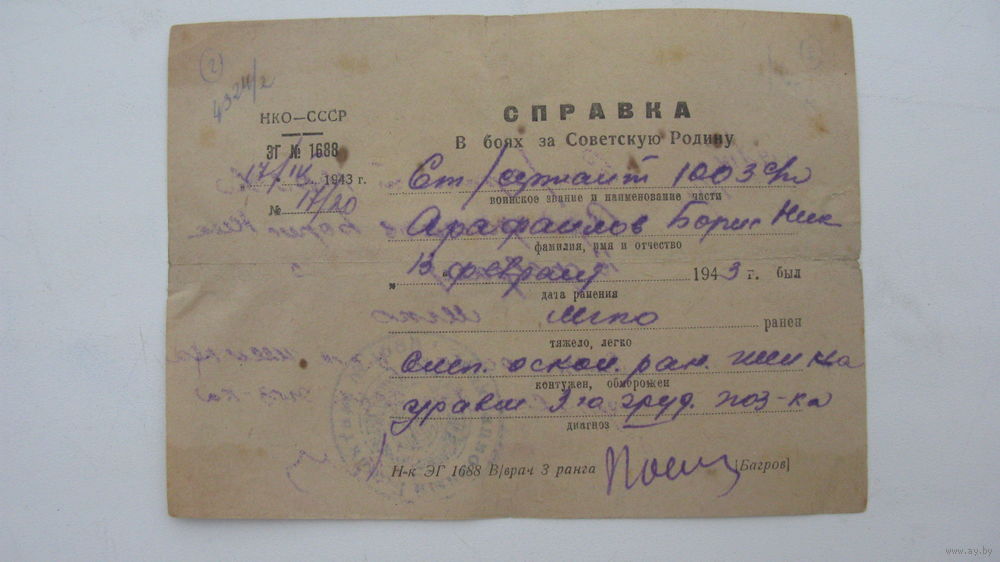 4324/2
НКО—СССР
ЭГ № 1688
17/IV 1943 г.
№ 17/20
СПРАВКА
В боях за Советскую Родину
Ст/сержант 1003 сп
воинское звание и наименование части
Арафаилов Борис Ник
фамилия, имя и отчество
" 13 февраля 1943 г. был
дата ранения
легко ранен
тяжело, легко
слеп. оскол. ран.
контужен, обморожен
3го груд. поз-ка
диагноз
Н-к ЭГ 1688 В/врач 3 ранга [Багров]
www.ay.by